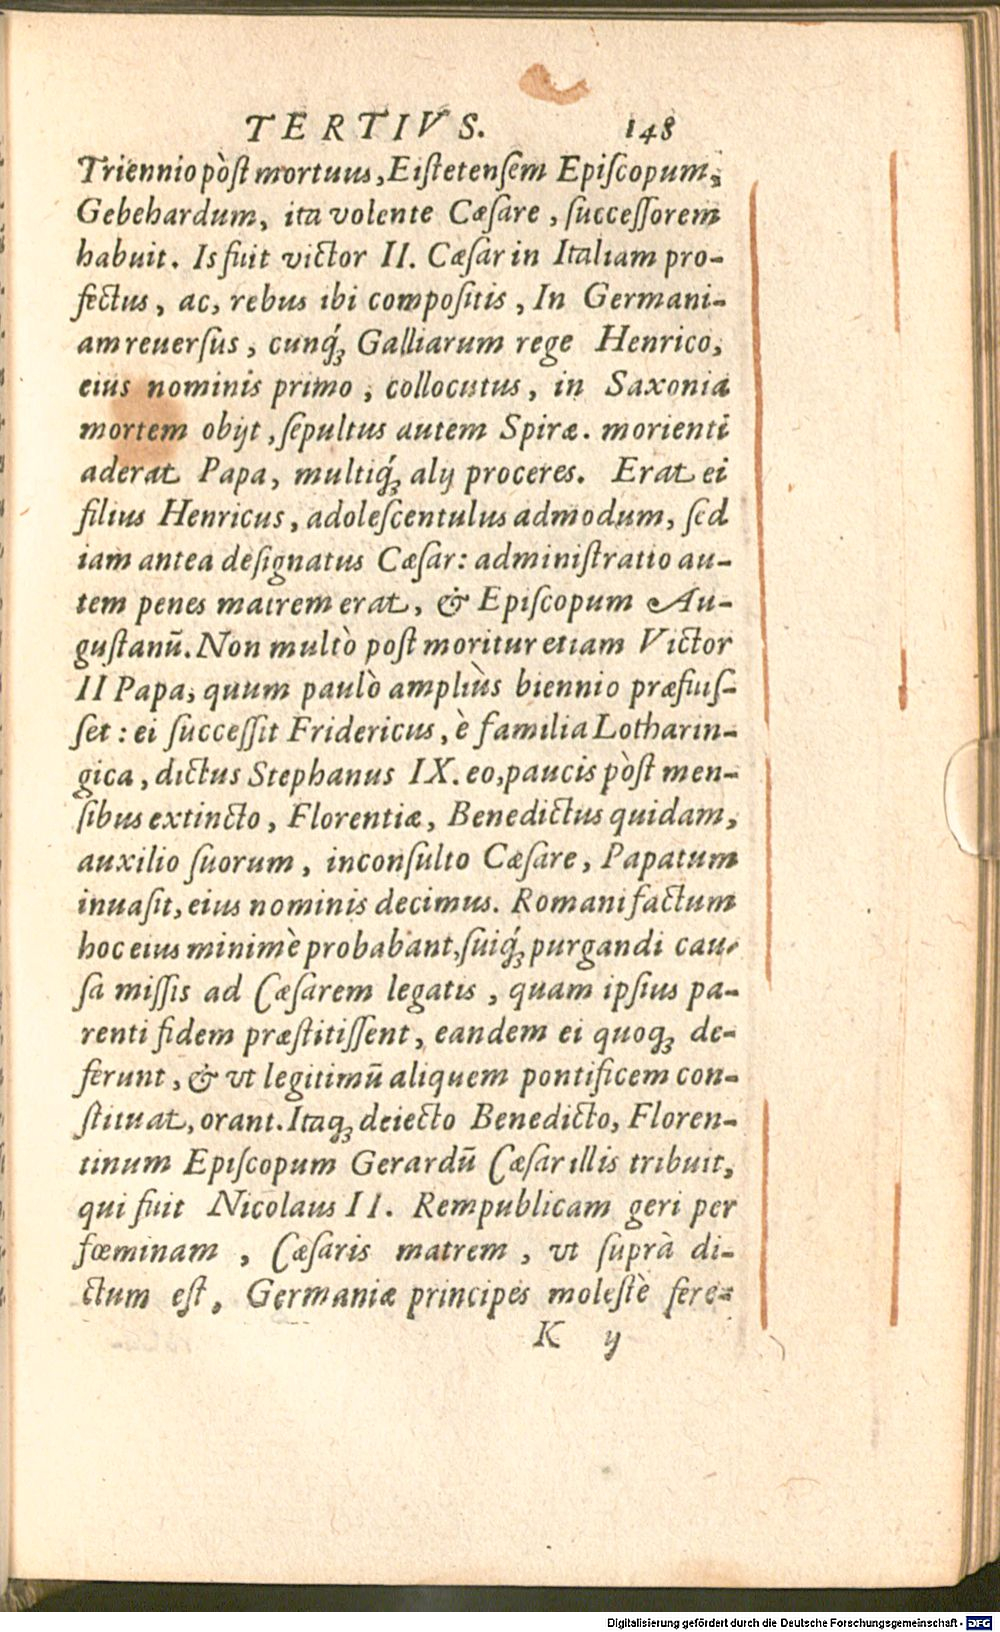 TERTIVS. 148
Triennio pòſt mortuus, Eiſtetenſem Epiſcopum,
Gebehardum, ita volente Cæſare, ſucceſſorem
habuit. Is fuit victor II. Cæſar in Italiam pro-
fectus, ac, rebus ibi compoſitis, In Germani-
am reuerſus, cunq́ꝫ Galliarum rege Henrico,
eius nominis primo, collocutus, in Saxonia
mortem obijt, ſepultus autem Spiræ. morienti
aderat Papa, multiq́ꝫ alij proceres. Erat ei
filius Henricus, adoleſcentulus admodum, ſed
iam antea deſignatus Cæſar: adminiſtratio au-
tem penes matrem erat, & Epiſcopum Au-
guſtanū. Non multò poſt moritur etiam Victor
II Papa, quum paulò ampliùs biennio præfuiſ-
ſet: ei ſucceſſit Fridericus, è familia Lotharin-
gica, dictus Stephanus IX. eo, paucis pòſt men-
ſibus extincto, Florentiæ, Benedictus quidam,
auxilio ſuorum, inconſulto Cæſare, Papatum
inuaſit, eius nominis decimus. Romani factum
hoc eius minimè probabant, ſuiq́ꝫ purgandi cau-
ſa miſſis ad Cæſarem legatis, quam ipſius pa-
renti fidem præſtitiſſent, eandem ei quoqꝫ de-
ferunt, & vt legitimū aliquem pontificem con-
ſtituat, orant. Itaqꝫ deiecto Benedicto, Floren-
tinum Epiſcopum Gerardū Cæſar illis tribuit,
qui fuit Nicolaus II. Rempublicam geri per
fœminam, Cæſaris matrem, vt ſuprà di-
ctum eſt, Germaniæ principes moleſtè fere-
K ij
Digitalisierung gefördert durch die Deutsche Forschungsgemeinschaft - DFG